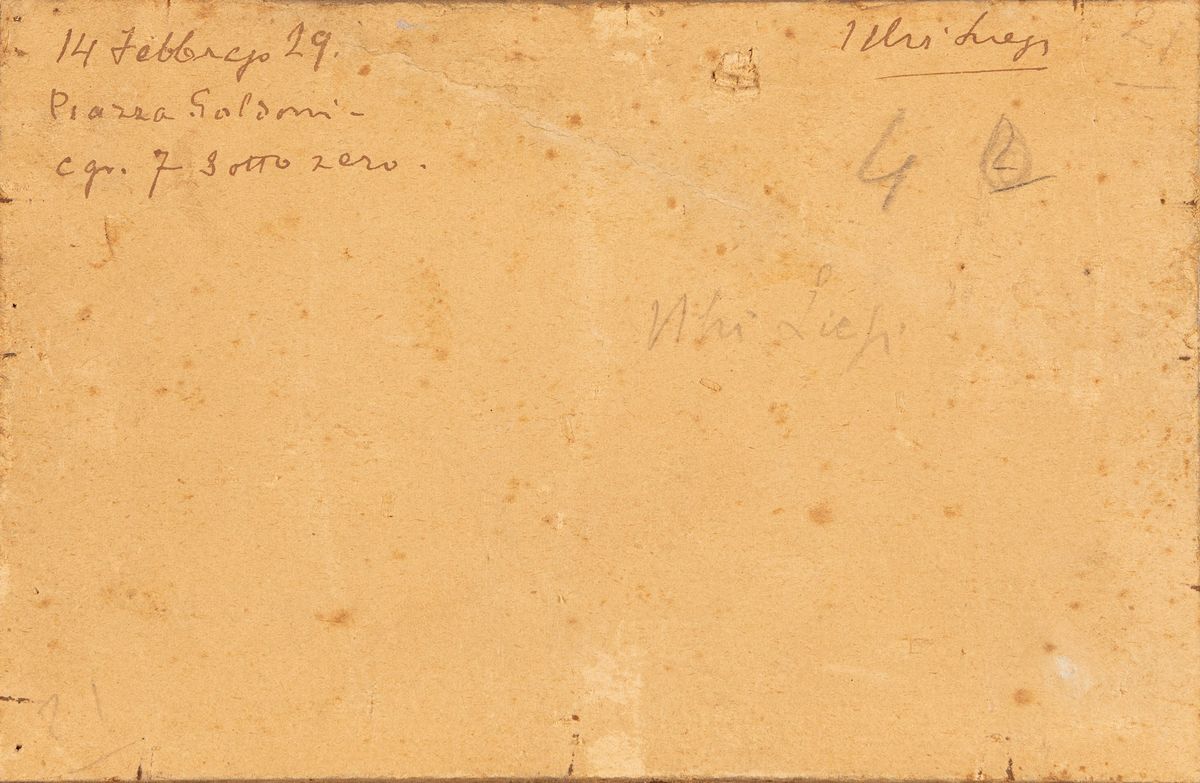 14 Febbrajo 29.
Ulvi Liegi
Piazza Goldoni -
e gr. 7 sotto zero.
4
Ulvi Liegi
21